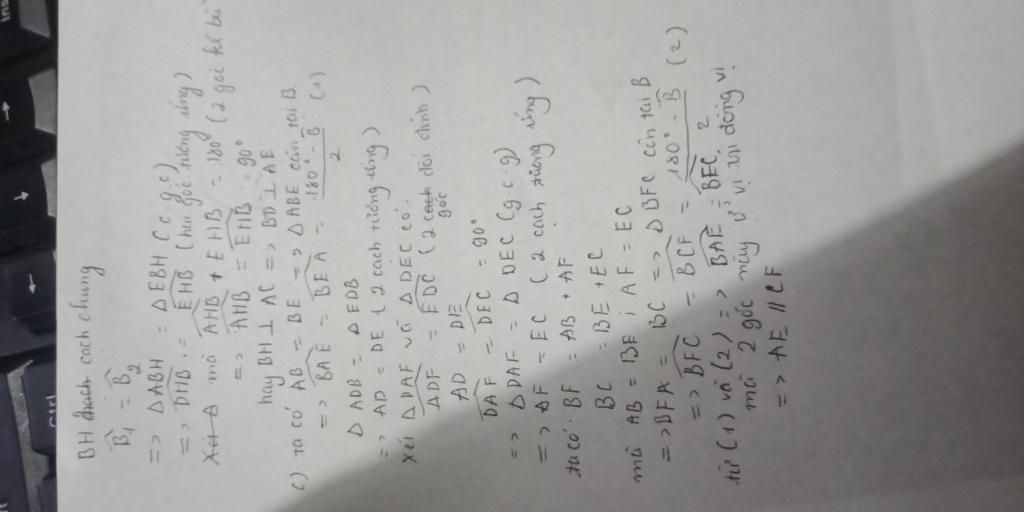 BH cach chung
B̂₁ = B̂₂
=> Δ ABH = Δ EBH (c.g.c)
=> DHB = EHB (hai góc tương ứng)
mà AHB + EHB = 180° (2 góc kề bù
=> AHB = EHB = 90°
hay BH ⊥ AC => BD ⊥ AE
c) ta có AB = BE => Δ ABE cân tại B.
=> BAE = BEA = (180° - B̂)/2 (1)
Δ ADB = Δ EDB
=> AD = DE (2 cach tương ứng)
Xét Δ DAF và Δ DEC có:
ADF = EDC (2 góc đối đỉnh)
AD = DE
DAF = DEC = 90°
=> Δ DAF = Δ DEC (g.c.g)
=> AF = EC (2 cach tương ứng)
ta có: BF = AB + AF
BC = BE + EC
mà AB = BE ; AF = EC
=> BFA = BC => Δ BFC cân tại B
=> BFC = BCF = (180° - B̂)/2 (2)
từ (1) và (2) => BAE = BEC.
mà 2 góc này ở vị trí đồng vị
=> AE // CF
Ctrl
Ins